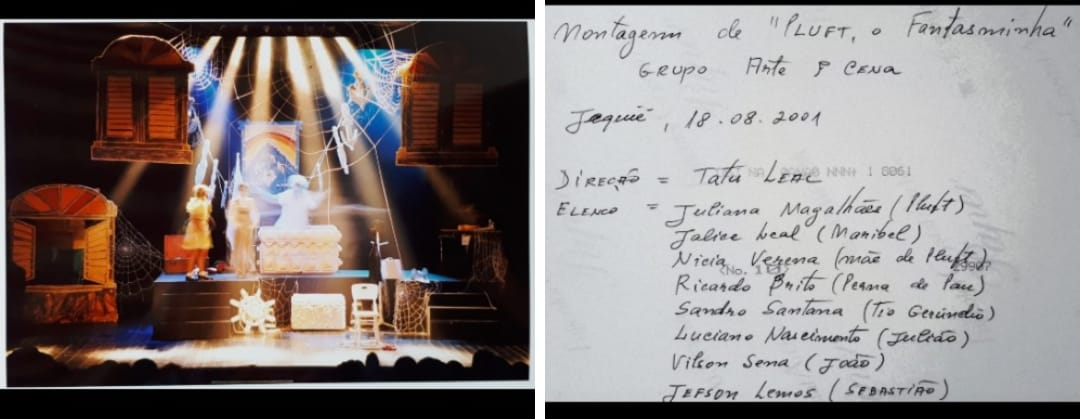 Montagem de "PLUFT, o Fantasminha"
GRUPO Arte & CENA
Jequié, 18.08.2001
DIREÇÃO = Tatu LEAL
ELENCO = Juliana Magalhães (Pluft)
Jalice Leal (Maribel)
Nicia Verena (mãe de Pluft)
Ricardo Brito (Perna de Pau)
Sandro Santana (Tio Gerúndio)
Luciano Nascimento (Julião)
Vilson Sena (João)
JEFSON Lemos (SEBASTIÃO)